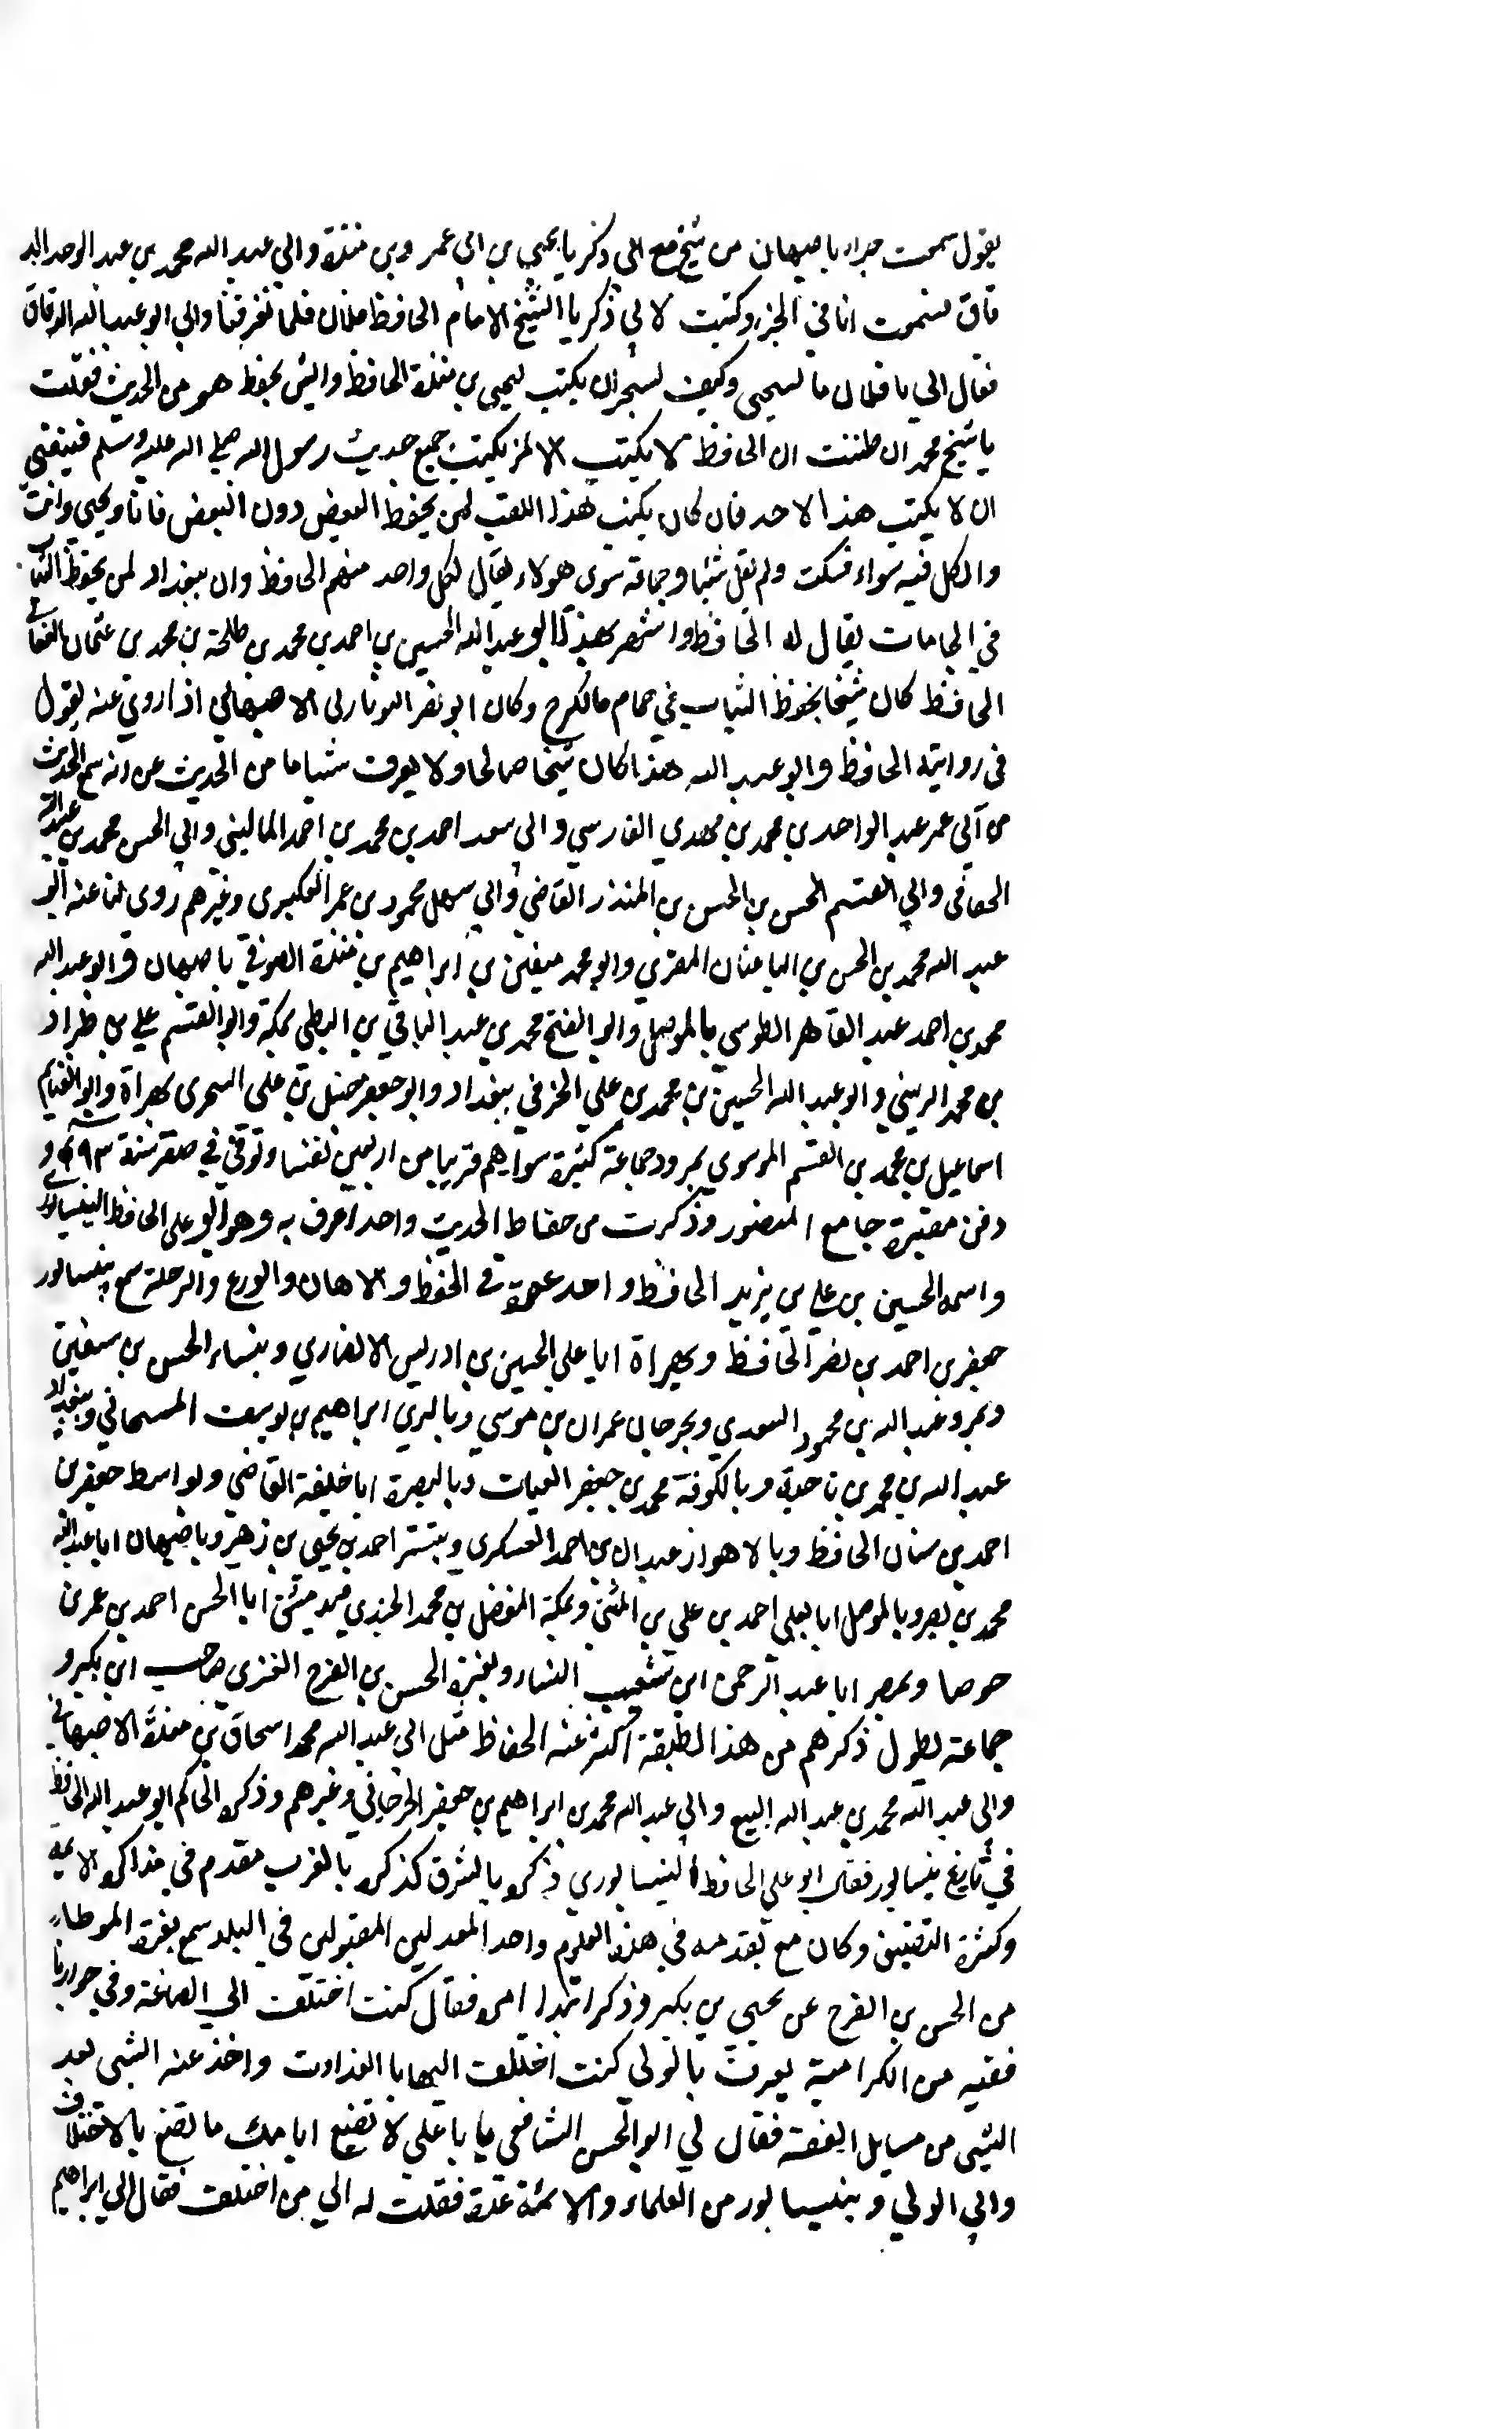 يقول سمعت جزءا باصبهان من شيخ مع ابي ذكريا يحيي بن ابي عمرو بن منندة وابي عبد الله محمد بن عبد الوحد الد
قاق لسموت انا في الجزء وكتبت لا بي ذكريا الشيخ الامام الحافظ فلان فلما تفرقنا والي ابو عبد الله الدقاق
فقال الي يا فلان ما تستحيي وكيف تستجيز ان يكتب ليحيي بن مندة الحافظ وايش يحفظ هو من الحديث فقلت
يا شيخ محمد ان ظننت ان الحافظ لا يكتب الا لمن يكتب جميع حديث رسول الله صلي الله عليه وسلم فينبغي
ان لا يكتب هذا لاحد فان كان يكتب هذا اللقب لمن يحفظ البعض دون البعض فانا ويحيي وانت
والكل فيه سواء فسكت ولم يقل شيئا وجماعة سوى هولاء يقال لكل واحد منهم الحافظ وان ببغداد لمن يحفظ الثياب
في الحمامات يقال له الحافظ واشتهر بهذا ابو عبد الله الحسين بن احمد بن محمد بن طلحة بن محمد بن عثمان النعالي
الحافظ كان شيخا يحفظ الثياب في حمام بالكرخ وكان ابو نصر اليونارتي الاصبهاني اذا روي عنه يقول
في روايته الحافظ وابو عبد الله هذا كان شيخا صالحا ولا يعرف شيئا ما من الحديث عن انه سمع الحديث
من ابي عمر عبد الواحد بن محمد بن مهدي الفارسي وابي سعد احمد بن محمد بن احمد الماليني وابي الحسن محمد بن عبيد الله
الحنائي وابي القسم الحسن بن الحسن بن المنذر القاضي وابي سهل محمود بن عمر العكبري وغيرهم روي لنا عنه ابو
عبد الله محمد بن الحسن بن الباغبان المقري وابو محمد سفين بن ابراهيم بن مندة الصوفي باصبهان وابو عبد الله
محمد بن احمد عبد القاهر الطوسي بالموصل وابو الفتح محمد بن عبد الباقي بن البطي بمكة وابو القسم علي بن طراد
بن محمد الزينبي وابو عبد الله الحسين بن محمد بن علي الخرفي ببغداد وابو جعفر حنبل بن علي السجزي بهراة وابو الغنايم
اسماعيل بن محمد بن القسم الموسوي بمرو وجماعة كثيرة سواهم قريبا من اربعين نفسا وتوفي في صفر سنة ٤٩٣ و
دفن مقبرة جامع المنصور وذكرت من حفاظ الحديث واحدا عرف به وهو ابو علي الحافظ النيسابوري
واسمه الحسين بن علي بن يزيد الحافظ واحد عصره في الحفظ والاتقان والورع والرحلة سمع بنيسابور
جعفر بن احمد بن نصر الحافظ وبهراة ابا علي الحسين بن ادريس الانصاري وبنساء الحسن بن سفين
وبمرو عبد الله بن محمود السعدي وبجرجان عمران بن موسي وبالري ابراهيم بن يوسف الهسجاني وببغداد
عبد الله بن محمد بن ناجية وبالكوفة محمد بن جعفر القتات وبالبصرة ابا خليفة القاضي وبواسط جعفر بن
احمد بن سنان الحافظ وبالاهواز عبدان بن احمد العسكري وبتستر احمد بن يحيي بن زهير وباصبهان ابا عبد الله
محمد بن نصر وبالموصل ابا يعلي احمد بن علي بن المثني وبمكة المفضل بن محمد الجندي وبدمشق ابا الحسن احمد بن عمر بن
جوصا وبمصر ابا عبد الرحمن ابن شعيب النساء وبغزة الحسن بن الفرج الغزي صاحب ابن بكير و
جماعة يطول ذكرهم من هذا الطبقة اكثر عنه الحفاظ مثل ابي عبد الله محمد اسحاق بن مندة الاصبهاني
وابي عبد الله محمد بن عبد الله البيع وابي عبد الله محمد بن ابراهيم بن جعفر الجرجاني وغيرهم وذكره الحاكم ابو عبد الله الحافظ
في تاريخ نيسابور فقال ابو علي الحافظ النيسابوري ذكره بالشرق كذكره بالغرب مقدم في مذاكره الايمه
وكثرة التصنيف وكان مع تقدمه في هذه العلوم واحد المعدلين المقبولين في البلد سمع بغزة الموطاء
من الحسن بن الفرج عن يحيي بن بكير وذكر ابتداء امره فقال كنت اختلف الي الصاغة وفي جوارنا
فقيه من الكرامية يعرف بالولي كنت اختلف اليها بالغداوت واخذ عنه الشي بعد
الشي من مسايل الفقه فقال لي ابو الحسن الشافعي يا با علي لا تضيع ايامك ما تصنع بالاختلاف
والي الولي وبنيسابور من العلماء والائمة عدة فقلت له الي من اختلف فقال الي ابراهيم